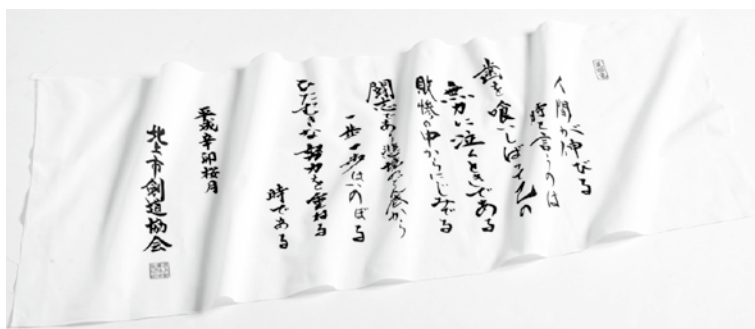 人間が伸びる
時と言うのは
歯を喰いしばその
無力に泣くときである
敗惨の中からにじみでる
闘志であり悲境の底から
一歩一歩はいのぼる
ひたむきな努力を重ねる
時である
平成辛卯桜月
北上市剣道協会